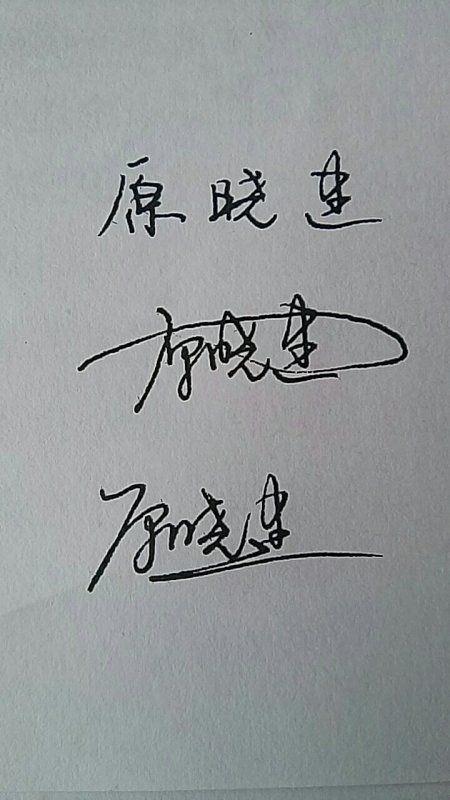 原晓建
原晓建
原晓建